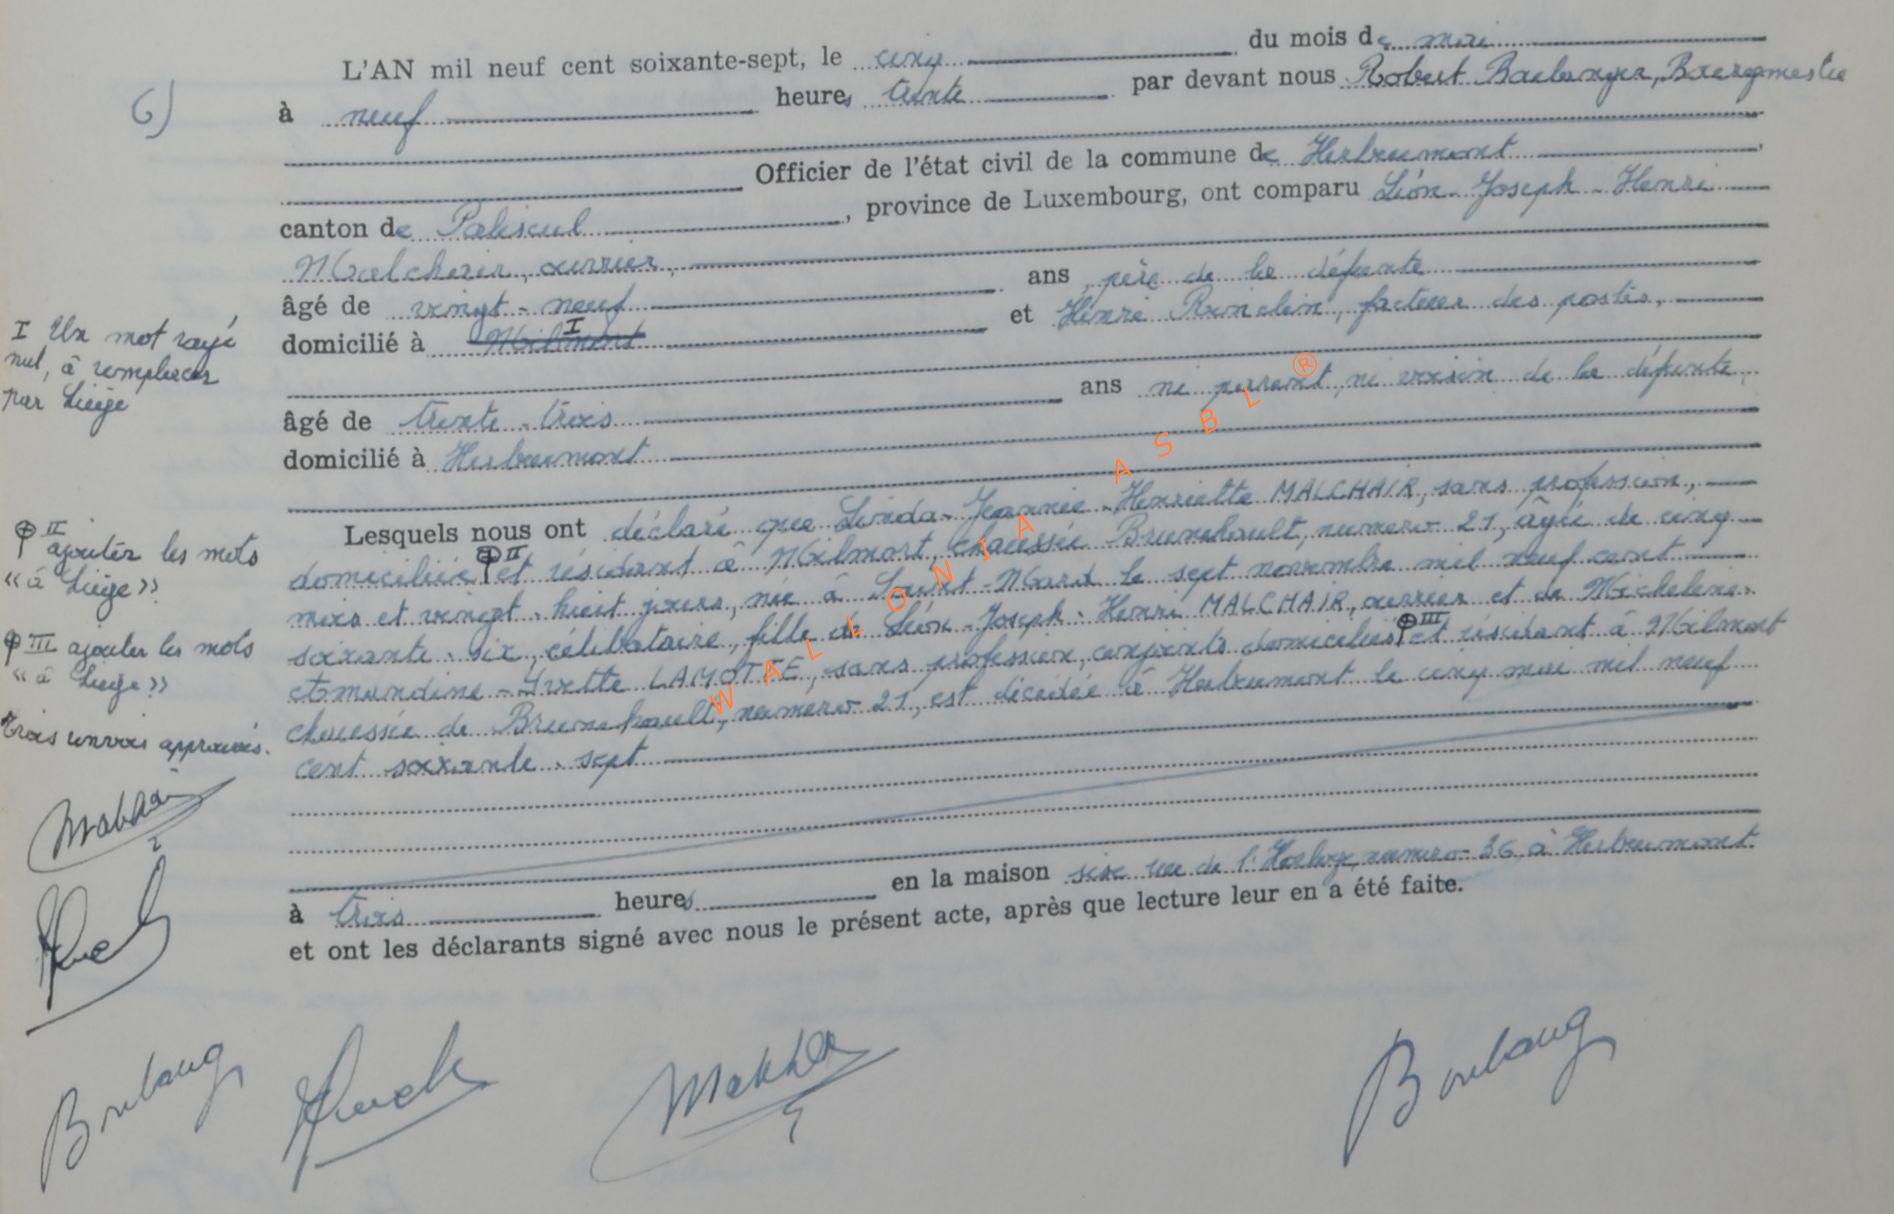 6)
L'AN mil neuf cent soixante-sept, le cinq du mois de mai
à neuf heures trente par devant nous Robert Boulanger, Bourgmestre
Officier de l'état civil de la commune de Herbeumont
canton de Paliseul, province de Luxembourg, ont comparu Léon-Joseph-Henri
Malchair, ouvrier,
âgé de vingt-neuf ans père de la défunte
domicilié à Milmort I et Henri, facteur des postes,
âgé de trente-trois ans ni parent, ni voisin de la défunte,
domicilié à Herbeumont
Lesquels nous ont déclaré que Linda-Jeannie-Henriette MALCHAIR, sans profession,
domiciliée II et résidant à Milmort, chaussée Brunehault, numéro 21, âgée de cinq
mois et vingt-huit jours, née à Saint-Mard le sept novembre mil neuf cent
soixante-six, célibataire, fille de Léon-Joseph-Henri MALCHAIR, ouvrier et de Micheline-
Emundine-Yvette LAMOTTE, sans profession, conjoints domiciliés III et résidant à Milmort
chaussée de Brunehault, numéro 21, est décédée à Herbeumont le cinq mai mil neuf
cent soixante-sept
à trois heures en la maison sise rue de l', numéro 36, à Herbeumont
et ont les déclarants signé avec nous le présent acte, après que lecture leur en a été faite.
I Un mot rayé
nul, à remplacer
par Liège
II ajouter les mots
«à Liège»
III ajouter les mots
«à Liège»
Trois renvois approuvés.
Malchair
Boulang
Malchair
Boulang
WALLONIA ASBL ®